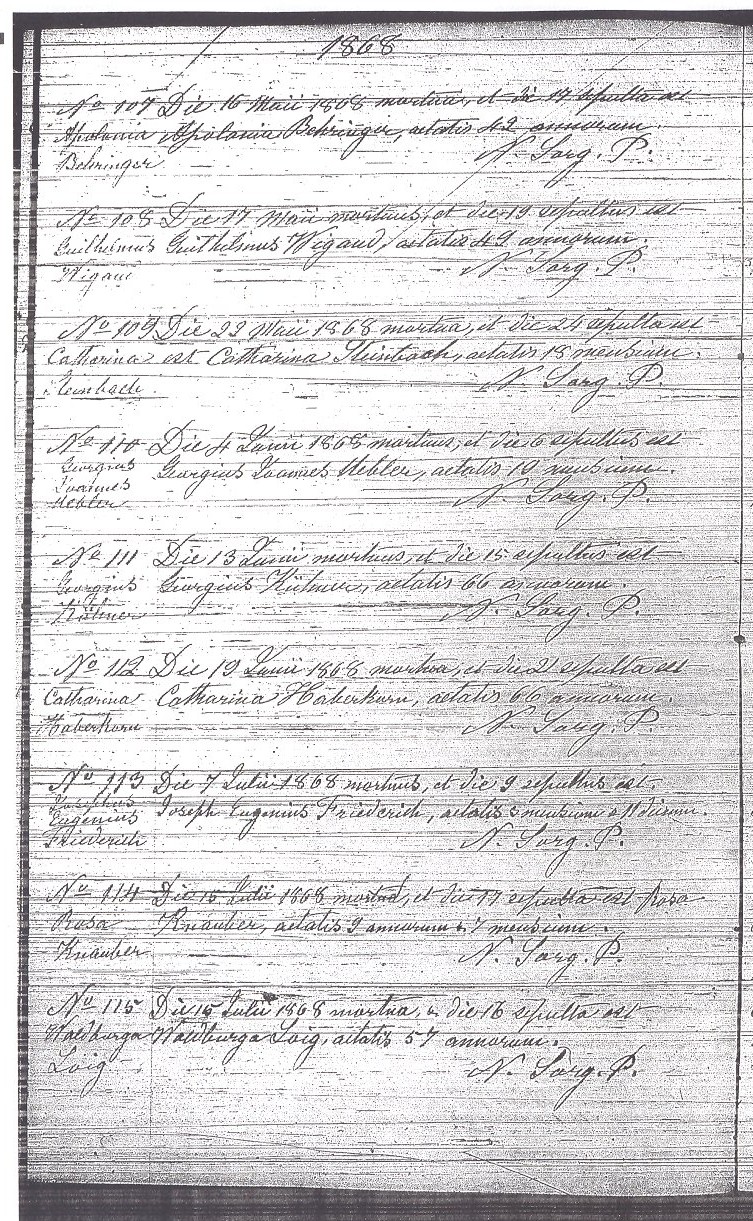 1868
No 107 Die 16 Maii 1868 mortua, et die 17 sepulta est
Apolonia Apolonia Behringer, aetatis 42 annorum.
Behringer N. Sorg. P.
No 108 Die 17 Maii mortuus, et die 19 sepultus est
Guilhelmus Guilhelmus Wigand, aetatis 49 annorum.
Wigand N. Sorg. P.
No 109 Die 22 Maii 1868 mortua, et die 24 sepulta est
Catharina est Catharina Steinbach, aetatis 18 mensium.
Steinbach. N. Sorg. P.
No 110 Die 4 Junii 1868 mortuus, et die 6 sepultus est
Georgius Georgius Joannes Uebler, aetatis 10 mensium.
Joannes
Uebler N. Sorg. P.
No 111 Die 13 Junii mortuus, et die 15 sepultus est
Georgius Georgius Kühner, aetatis 66 annorum.
Kühner N. Sorg. P.
No 112 Die 19 Junii 1868 mortua, et die 21 sepulta est
Catharina Catharina Haberkorn, aetatis 66 annorum.
Haberkorn N. Sorg. P.
No 113 Die 7 Julii 1868 mortuus, et die 9 sepultus est.
Josephus
Eugenius Joseph Eugenius Friederich, aetatis 5 mensium & 11 dierum.
Friederich N. Sorg. P.
No 114 Die 15 Julii 1868 mortua, et die 17 sepulta est Rosa
Rosa Knauber, aetatis 9 annorum & 7 mensium.
Knauber N. Sorg. P.
No 115 Die 15 Julii 1868 mortua, & die 16 sepulta est
Waldburga Waldburga Loig, aetatis 57 annorum.
Loig N. Sorg. P.